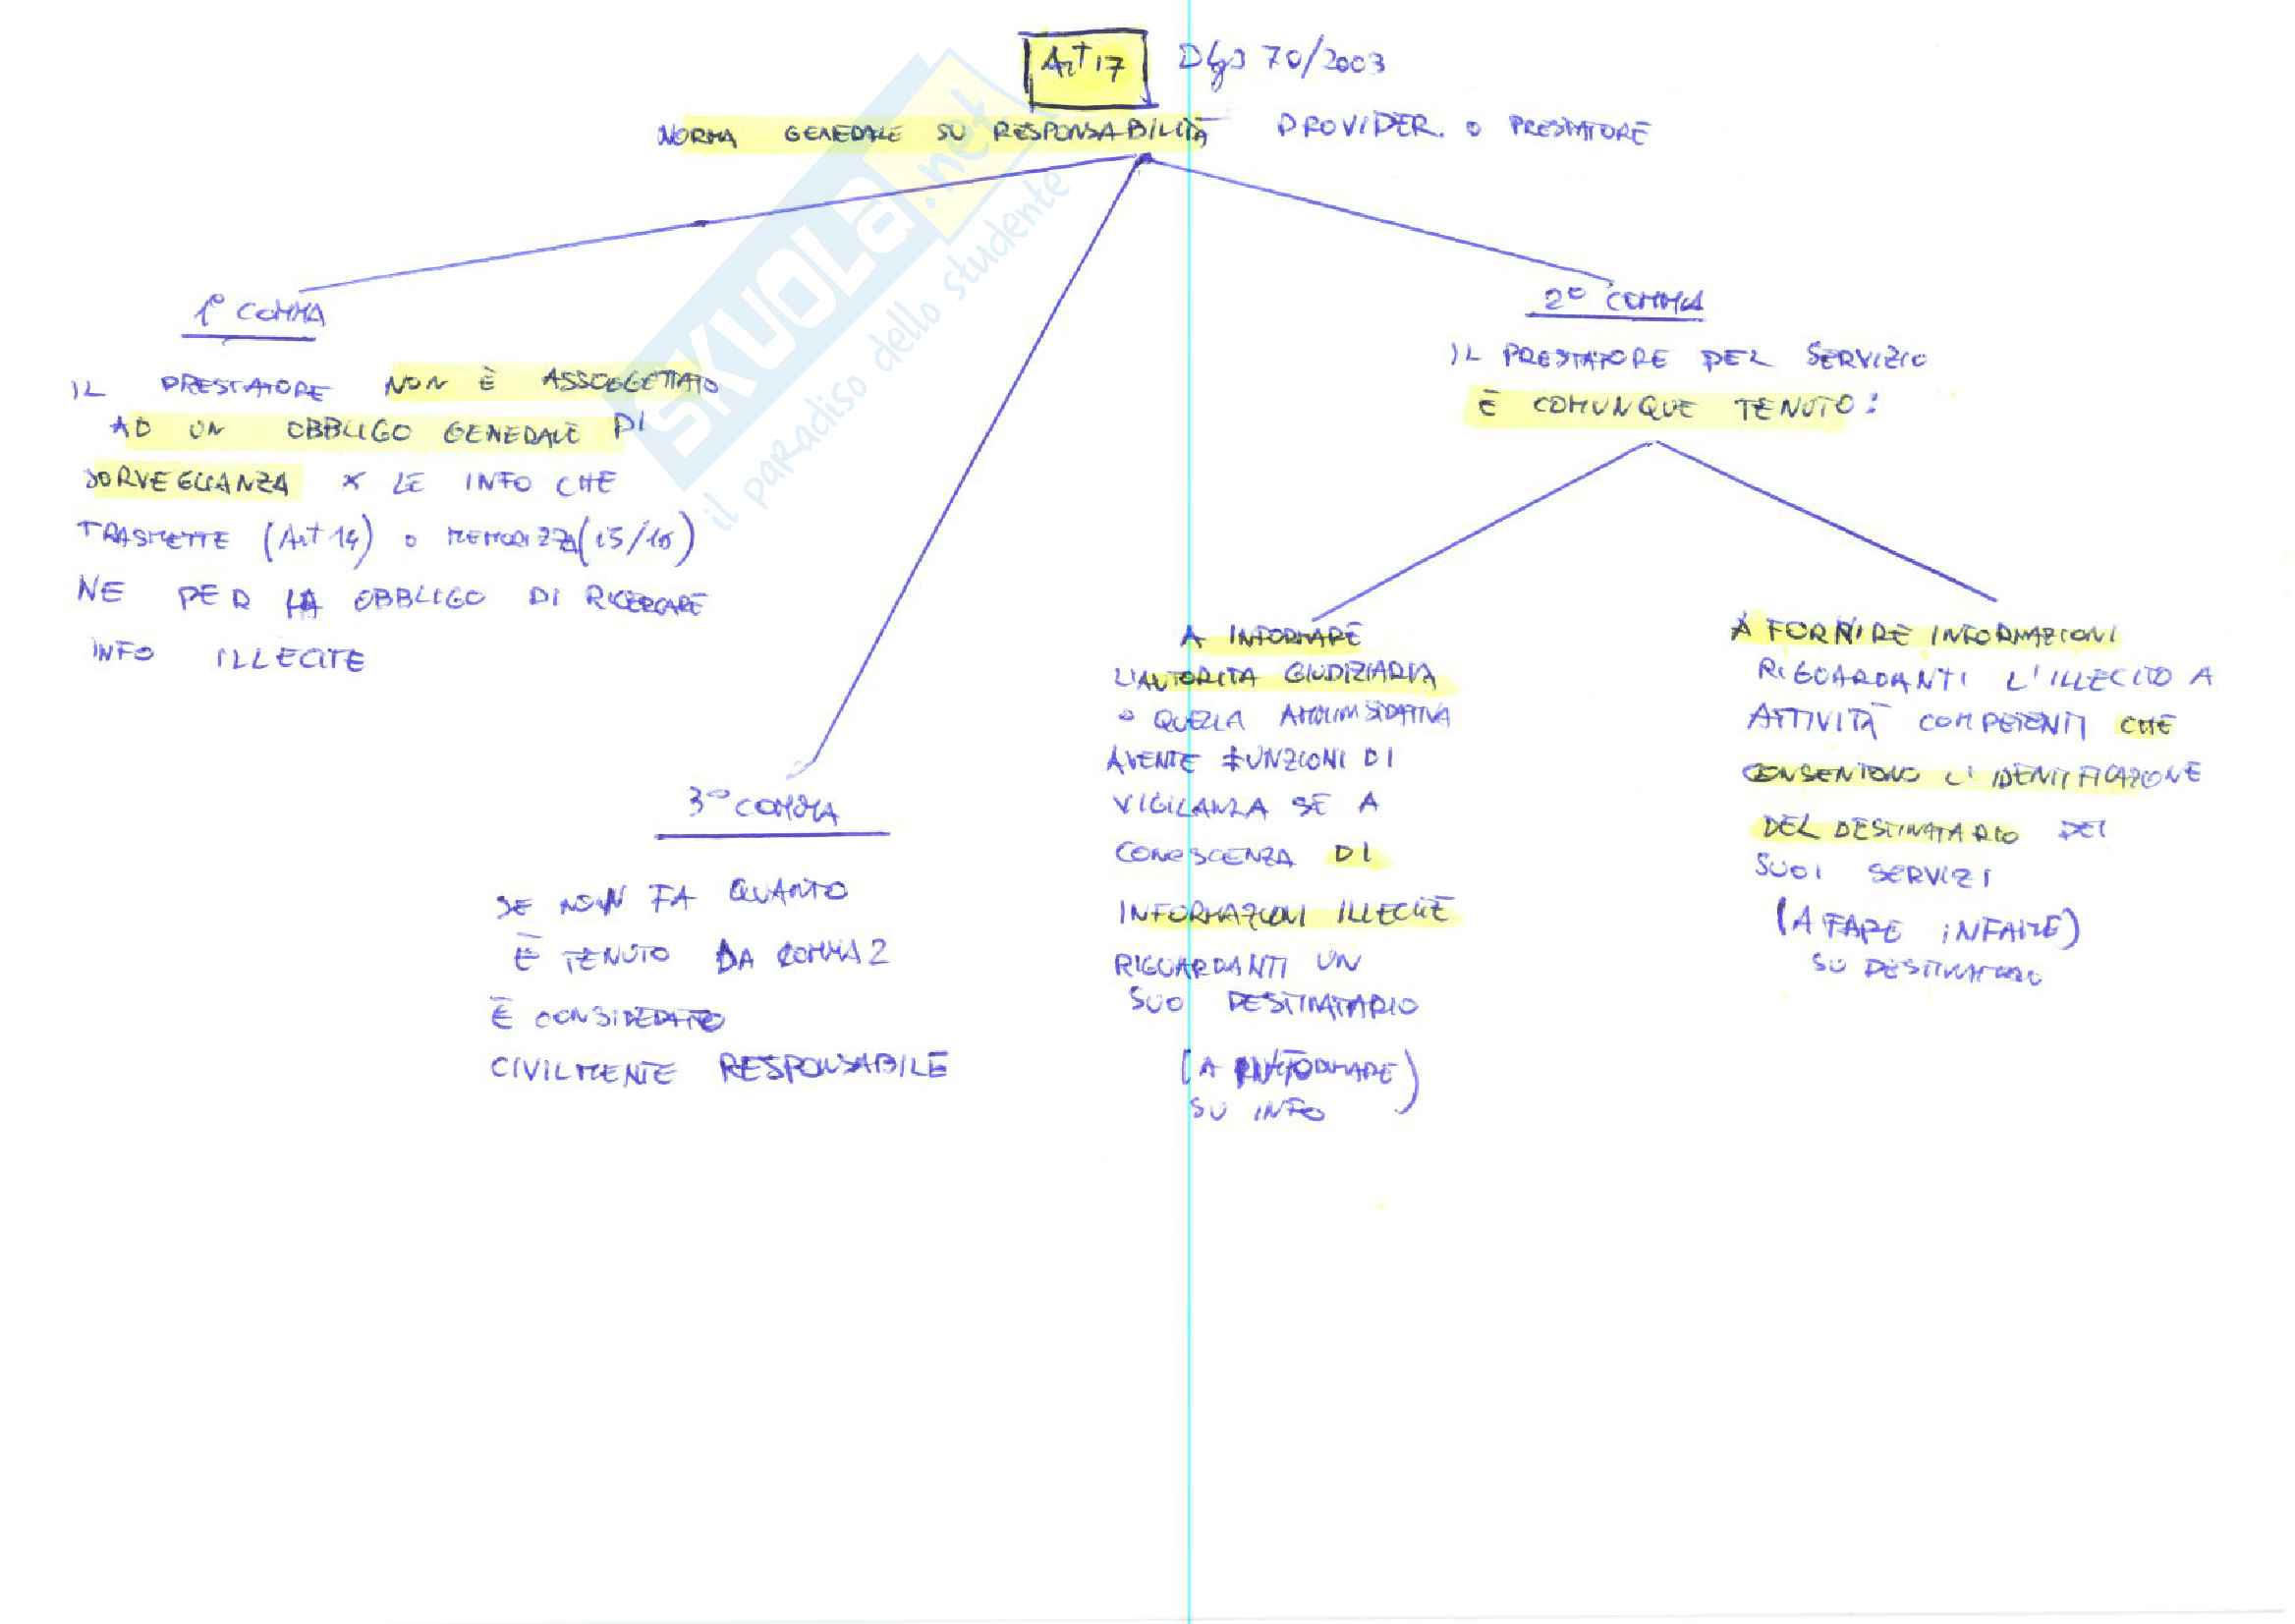 Art 17 Dlgs 70/2003
NORMA GENERALE SU RESPONSABILITÀ PROVIDER. O PRESTATORE
1° COMMA
IL PRESTATORE NON È ASSOGGETTATO
AD UN OBBLIGO GENERALE DI
SORVEGLIANZA X LE INFO CHE
TRASMETTE (Art 14) O MEMORIZZA (15/16)
NE PER HA OBBLIGO DI RICERCARE
INFO ILLECITE
3° COMMA
SE NON FA QUANTO
È TENUTO DA COMMA 2
È CONSIDERATO
CIVILMENTE RESPONSABILE
2° COMMA
IL PRESTATORE DEL SERVIZIO
È COMUNQUE TENUTO:
A INFORMARE
L'AUTORITA GIUDIZIARIA
O QUELLA
AVENTE FUNZIONI DI
VIGILANZA SE A
CONOSCENZA DI
INFORMAZIONI ILLECITE
RIGUARDANTI UN
SUO DESTINATARIO
(A INFORMARE)
SU INFO
A FORNIRE INFORMAZIONI
RIGUARDANTI L'ILLECITO A
ATTIVITÀ COMPETENTI CHE
CONSENTONO L'IDENTIFICAZIONE
DEL DESTINATARIO DEI
SUOI SERVIZI
(A FARE INFAME)
SU DESTINATARIO
SKUOLA.net
il paradiso dello studente